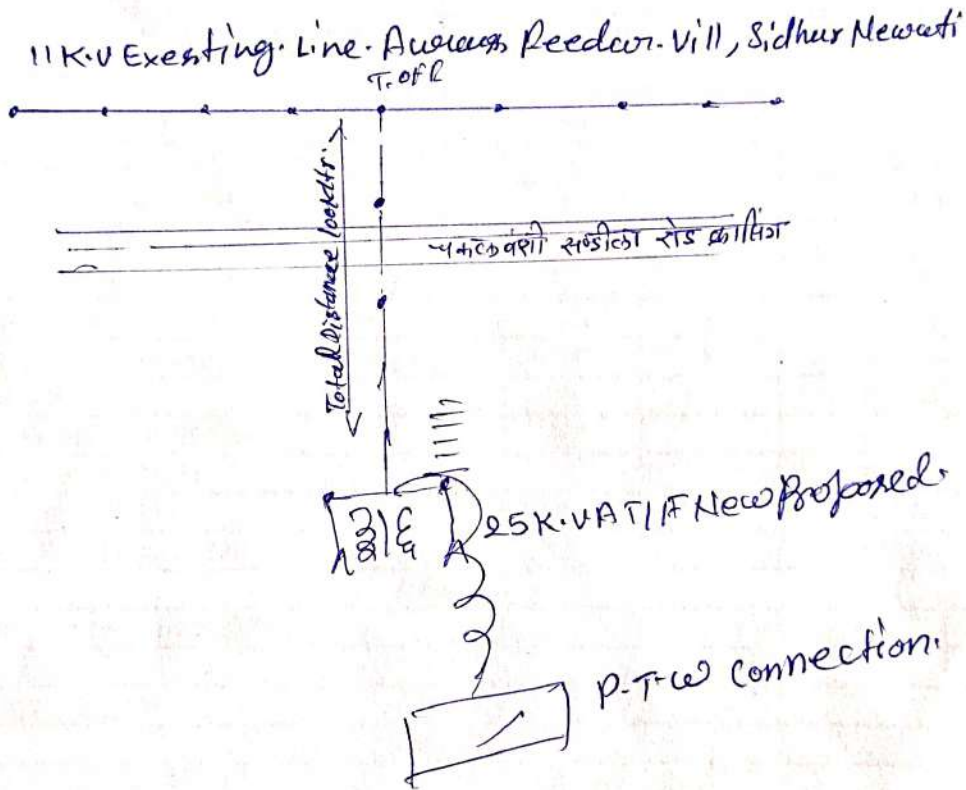 11 K.V Exesting. Line. Auraas Feedar. Vill, Sidhur Newati
T. Off
Total Distance
रोड क्रासिंग
25 K.V A T/F New Proposed.
P-T-W Connection.